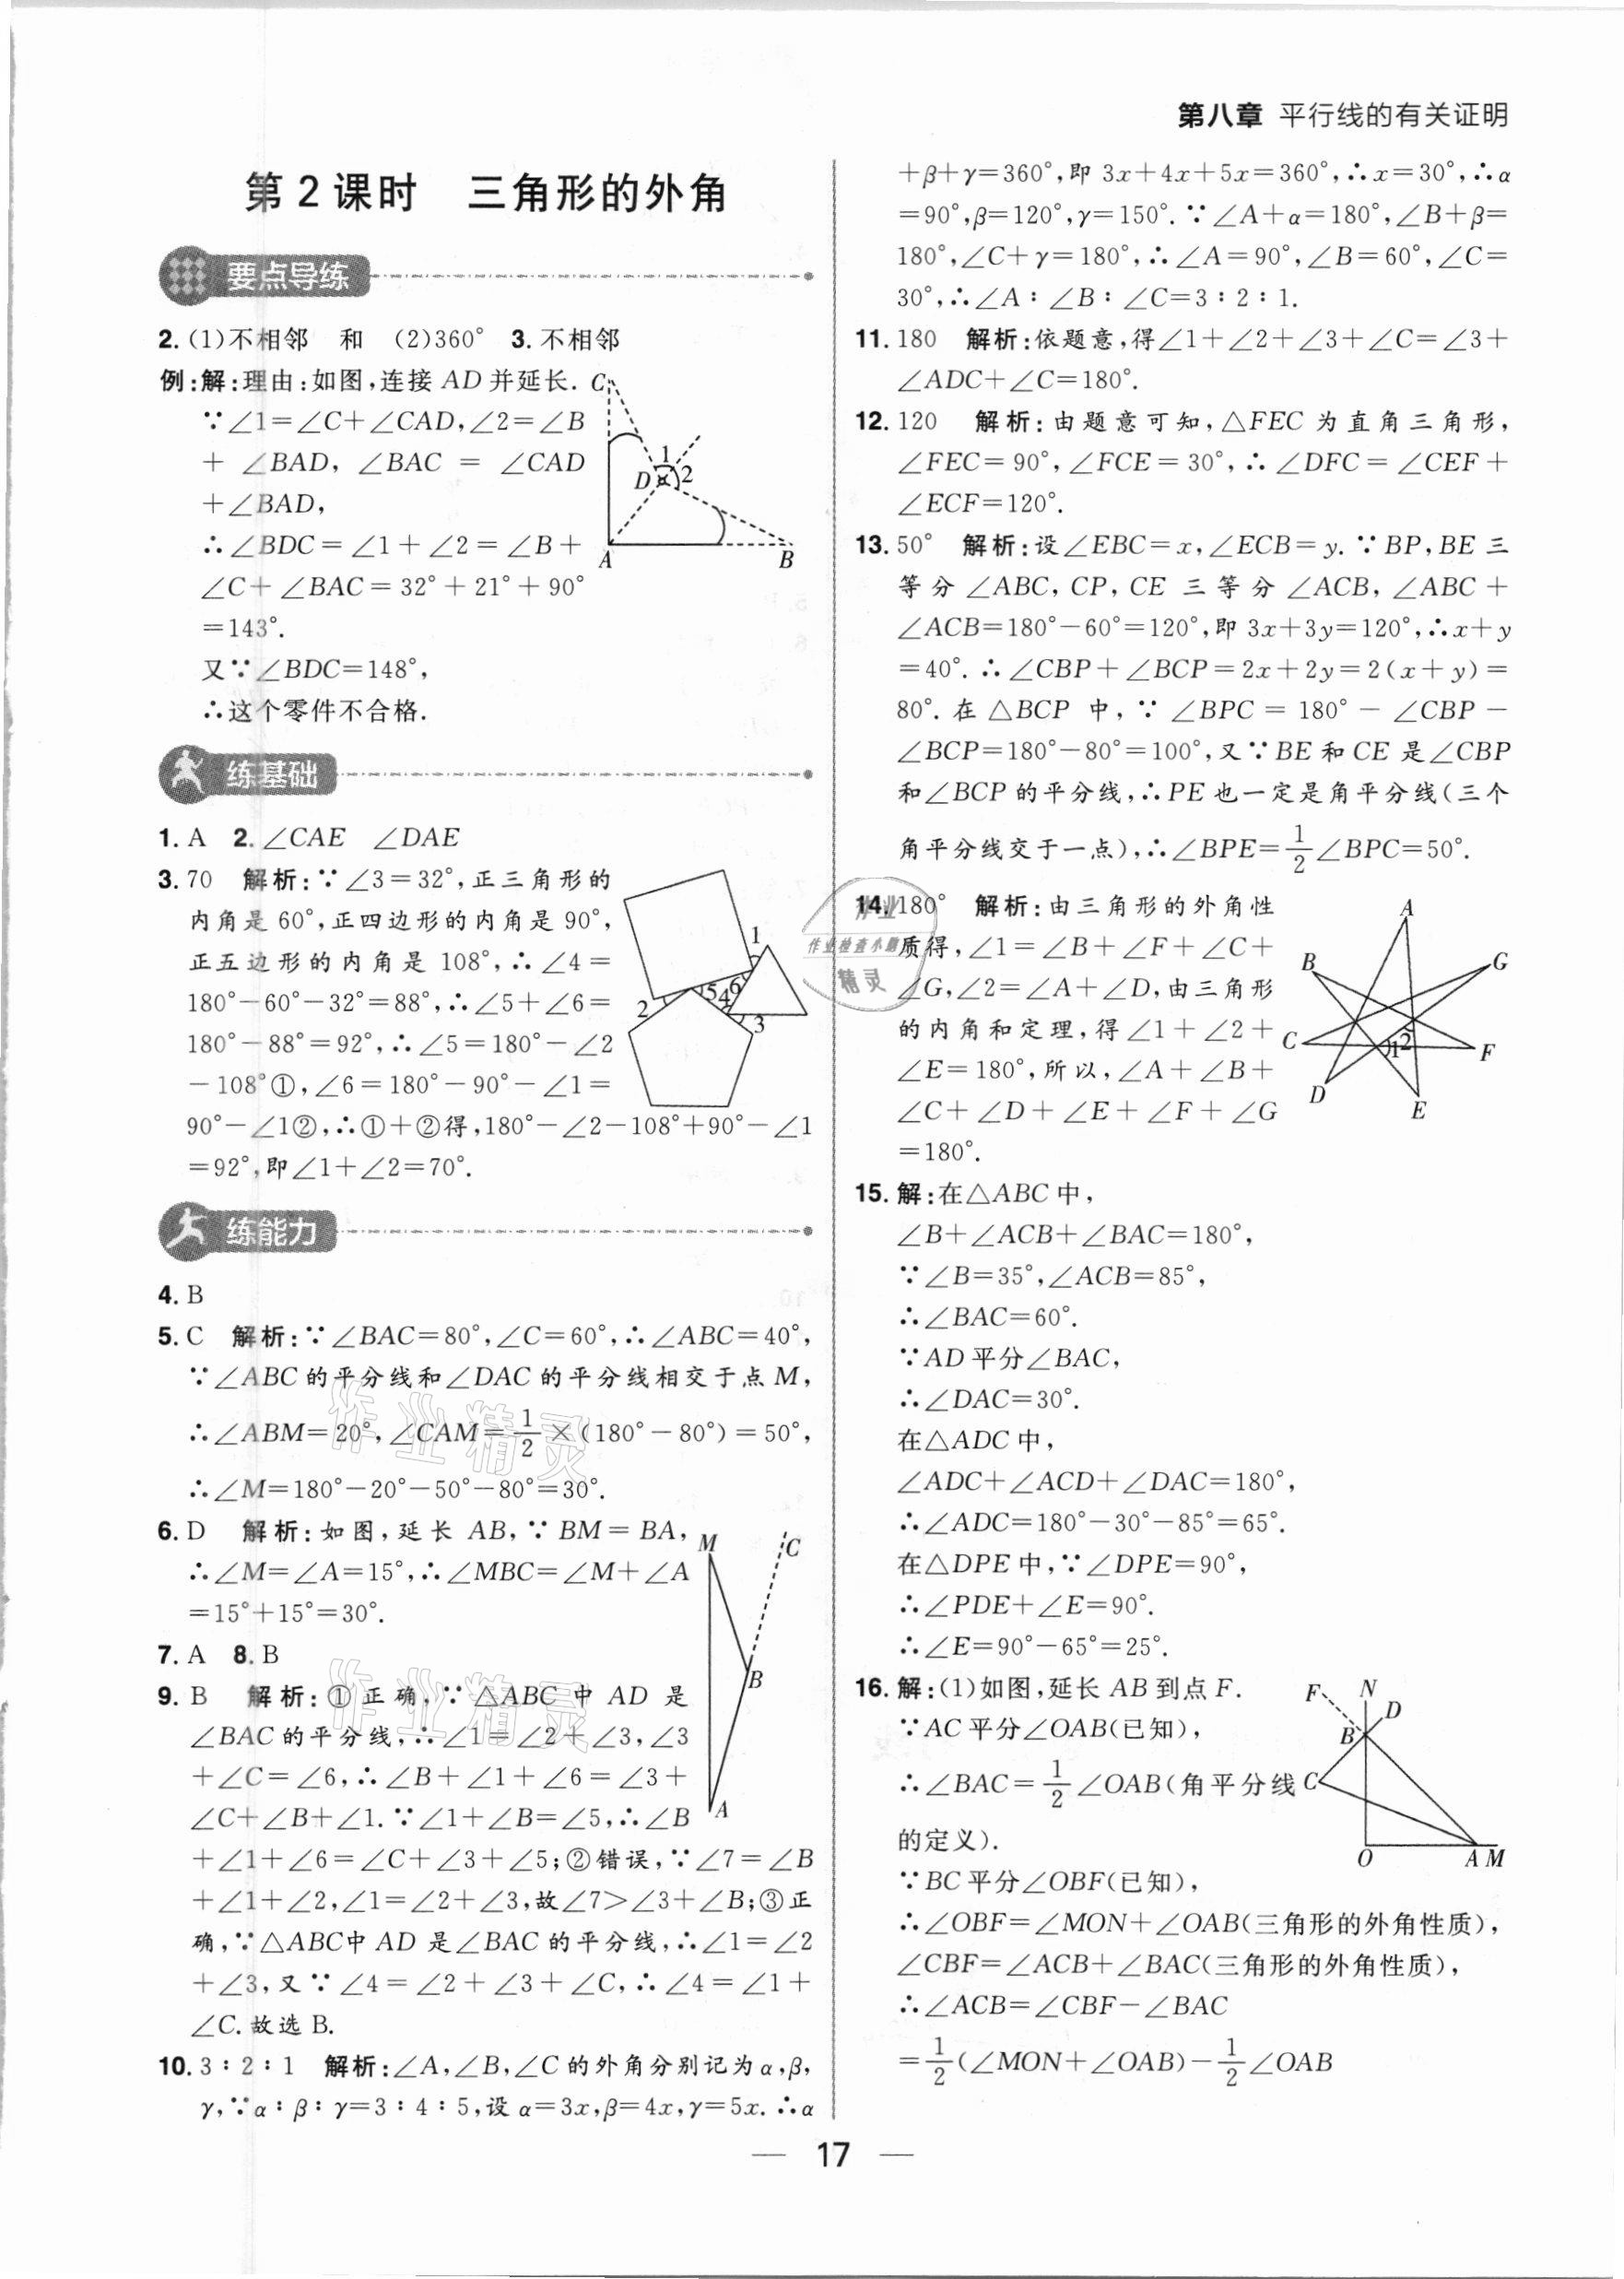 第八章 平行线的有关证明
第2课时 三角形的外角
要点导练
2. (1)不相邻 和 (2)360° 3. 不相邻
例:解:理由:如图,连接 AD 并延长.
∵∠1=∠C+∠CAD,∠2=∠B
+∠BAD,∠BAC=∠CAD
+∠BAD,
∴∠BDC=∠1+∠2=∠B+
∠C+∠BAC=32°+21°+90°
=143°.
又∵∠BDC=148°,
∴这个零件不合格.
C
1
D
2
A
B
练基础
1. A 2. ∠CAE ∠DAE
3. 70 解析:∵∠3=32°,正三角形的
内角是 60°,正四边形的内角是 90°,
正五边形的内角是 108°,∴∠4=
180°-60°-32°=88°,∴∠5+∠6=
180°-88°=92°,∴∠5=180°-∠2
-108°①,∠6=180°-90°-∠1=
90°-∠1②,∴①+②得,180°-∠2-108°+90°-∠1
=92°,即∠1+∠2=70°.
1
2
5
4
6
3
练能力
4. B
5. C 解析:∵∠BAC=80°,∠C=60°,∴∠ABC=40°,
∵∠ABC 的平分线和∠DAC 的平分线相交于点 M,
∴∠ABM=20°,∠CAM=1/2×(180°-80°)=50°,
∴∠M=180°-20°-50°-80°=30°.
6. D 解析:如图,延长 AB,∵BM=BA,
∴∠M=∠A=15°,∴∠MBC=∠M+∠A
=15°+15°=30°.
M
C
B
A
7. A 8. B
9. B 解析:①正确,∵△ABC 中 AD 是
∠BAC 的平分线,∴∠1=∠2+∠3,∠3
+∠C=∠6,∴∠B+∠1+∠6=∠3+
∠C+∠B+∠1.∵∠1+∠B=∠5,∴∠B
+∠1+∠6=∠C+∠3+∠5;②错误,∵∠7=∠B
+∠1+∠2,∠1=∠2+∠3,故∠7>∠3+∠B;③正
确,∵△ABC中 AD 是∠BAC 的平分线,∴∠1=∠2
+∠3,又∵∠4=∠2+∠3+∠C,∴∠4=∠1+
∠C.故选 B.
10. 3∶2∶1 解析:∠A,∠B,∠C 的外角分别记为 α,β,
γ,∵α∶β∶γ=3∶4∶5,设 α=3x,β=4x,γ=5x.∴α
+β+γ=360°,即 3x+4x+5x=360°,∴x=30°,∴α
=90°,β=120°,γ=150°.∵∠A+α=180°,∠B+β=
180°,∠C+γ=180°,∴∠A=90°,∠B=60°,∠C=
30°,∴∠A∶∠B∶∠C=3∶2∶1.
11. 180 解析:依题意,得∠1+∠2+∠3+∠C=∠3+
∠ADC+∠C=180°.
12. 120 解析:由题意可知,△FEC 为直角三角形,
∠FEC=90°,∠FCE=30°,∴∠DFC=∠CEF+
∠ECF=120°.
13. 50° 解析:设∠EBC=x,∠ECB=y.∵BP,BE 三
等分∠ABC,CP,CE 三等分∠ACB,∠ABC+
∠ACB=180°-60°=120°,即 3x+3y=120°,∴x+y
=40°.∴∠CBP+∠BCP=2x+2y=2(x+y)=
80°.在△BCP 中,∵∠BPC=180°-∠CBP-
∠BCP=180°-80°=100°,又∵BE 和 CE 是∠CBP
和∠BCP 的平分线,∴PE 也一定是角平分线(三个
角平分线交于一点),∴∠BPE=1/2∠BPC=50°.
14. 180° 解析:由三角形的外角性
质得,∠1=∠B+∠F+∠C+
∠G,∠2=∠A+∠D,由三角形
的内角和定理,得∠1+∠2+
∠E=180°,所以,∠A+∠B+
∠C+∠D+∠E+∠F+∠G
=180°.
A
B
G
C
1
2
F
D
E
15. 解:在△ABC 中,
∠B+∠ACB+∠BAC=180°,
∵∠B=35°,∠ACB=85°,
∴∠BAC=60°.
∵AD 平分∠BAC,
∴∠DAC=30°.
在△ADC 中,
∠ADC+∠ACD+∠DAC=180°,
∴∠ADC=180°-30°-85°=65°.
在△DPE 中,∵∠DPE=90°,
∴∠PDE+∠E=90°.
∴∠E=90°-65°=25°.
16. 解:(1)如图,延长 AB 到点 F.
∵AC 平分∠OAB(已知),
∴∠BAC=1/2∠OAB(角平分线
的定义).
∵BC 平分∠OBF(已知),
∴∠OBF=∠MON+∠OAB(三角形的外角性质),
∠CBF=∠ACB+∠BAC(三角形的外角性质),
∴∠ACB=∠CBF-∠BAC
=1/2(∠MON+∠OAB)-1/2∠OAB
F
N
D
B
C
O
A M
作业
作业检查小助
精灵
作业精灵
作业精灵
— 17 —